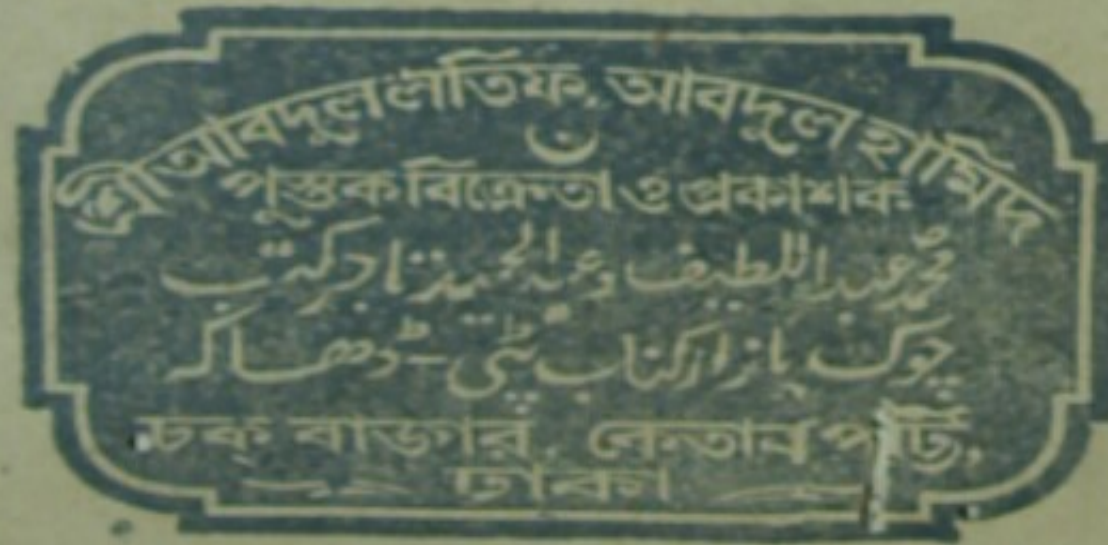 শ্রীআবদুললতিফ, আবদুল হামিদ
পুস্তক বিক্রেতা ও প্রকাশক
محمد عبد اللطیف و عبد الحمید تاجر کتب
چوک بازار کتاب پٹی - ڈھاکہ
চক্ বাজার, কেতাব পট্টি,
ঢাকা